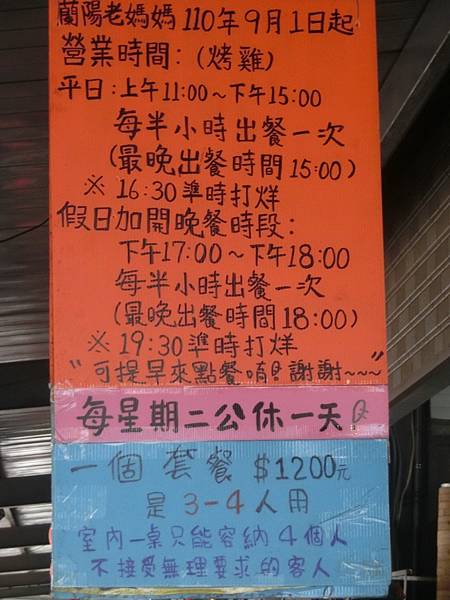 蘭陽老媽媽110年9月1日起
營業時間:(烤雞)
平日:上午11:00~下午15:00
每半小時出餐一次
(最晚出餐時間15:00)
※16:30準時打烊
假日加開晚餐時段:
下午17:00~下午18:00
每半小時出餐一次
(最晚出餐時間18:00)
※19:30準時打烊
"可提早來點餐唷!謝謝~~~"
每星期二公休一天
一個套餐$1200元
是3-4人用
室內一桌只能容納4個人
不接受無理要求的客人